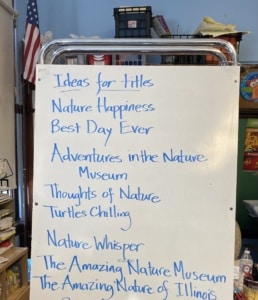 Ideas for titles
Nature Happiness
Best Day Ever
Adventures in the Nature
Museum
Thoughts of Nature
Turtles Chilling
Nature Whisper
The Amazing Nature Museum
The Amazing Nature of Illinois